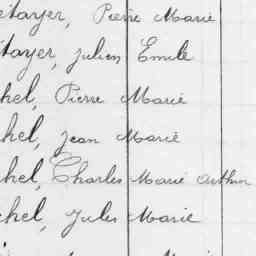 étayer, Pierre Marie
étayer, Julien Emile
hel, Pierre Marie
hel, Jean Marie
hel, Charles Marie Arthur
chel, Jules Marie